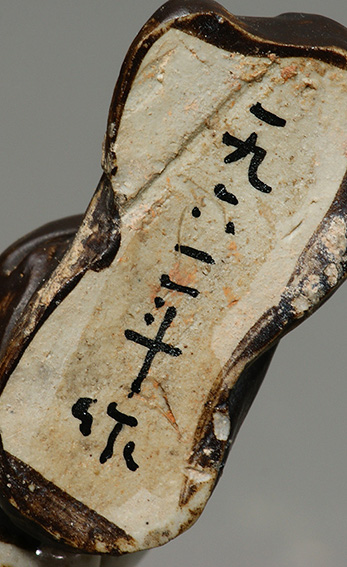 一九六二年作